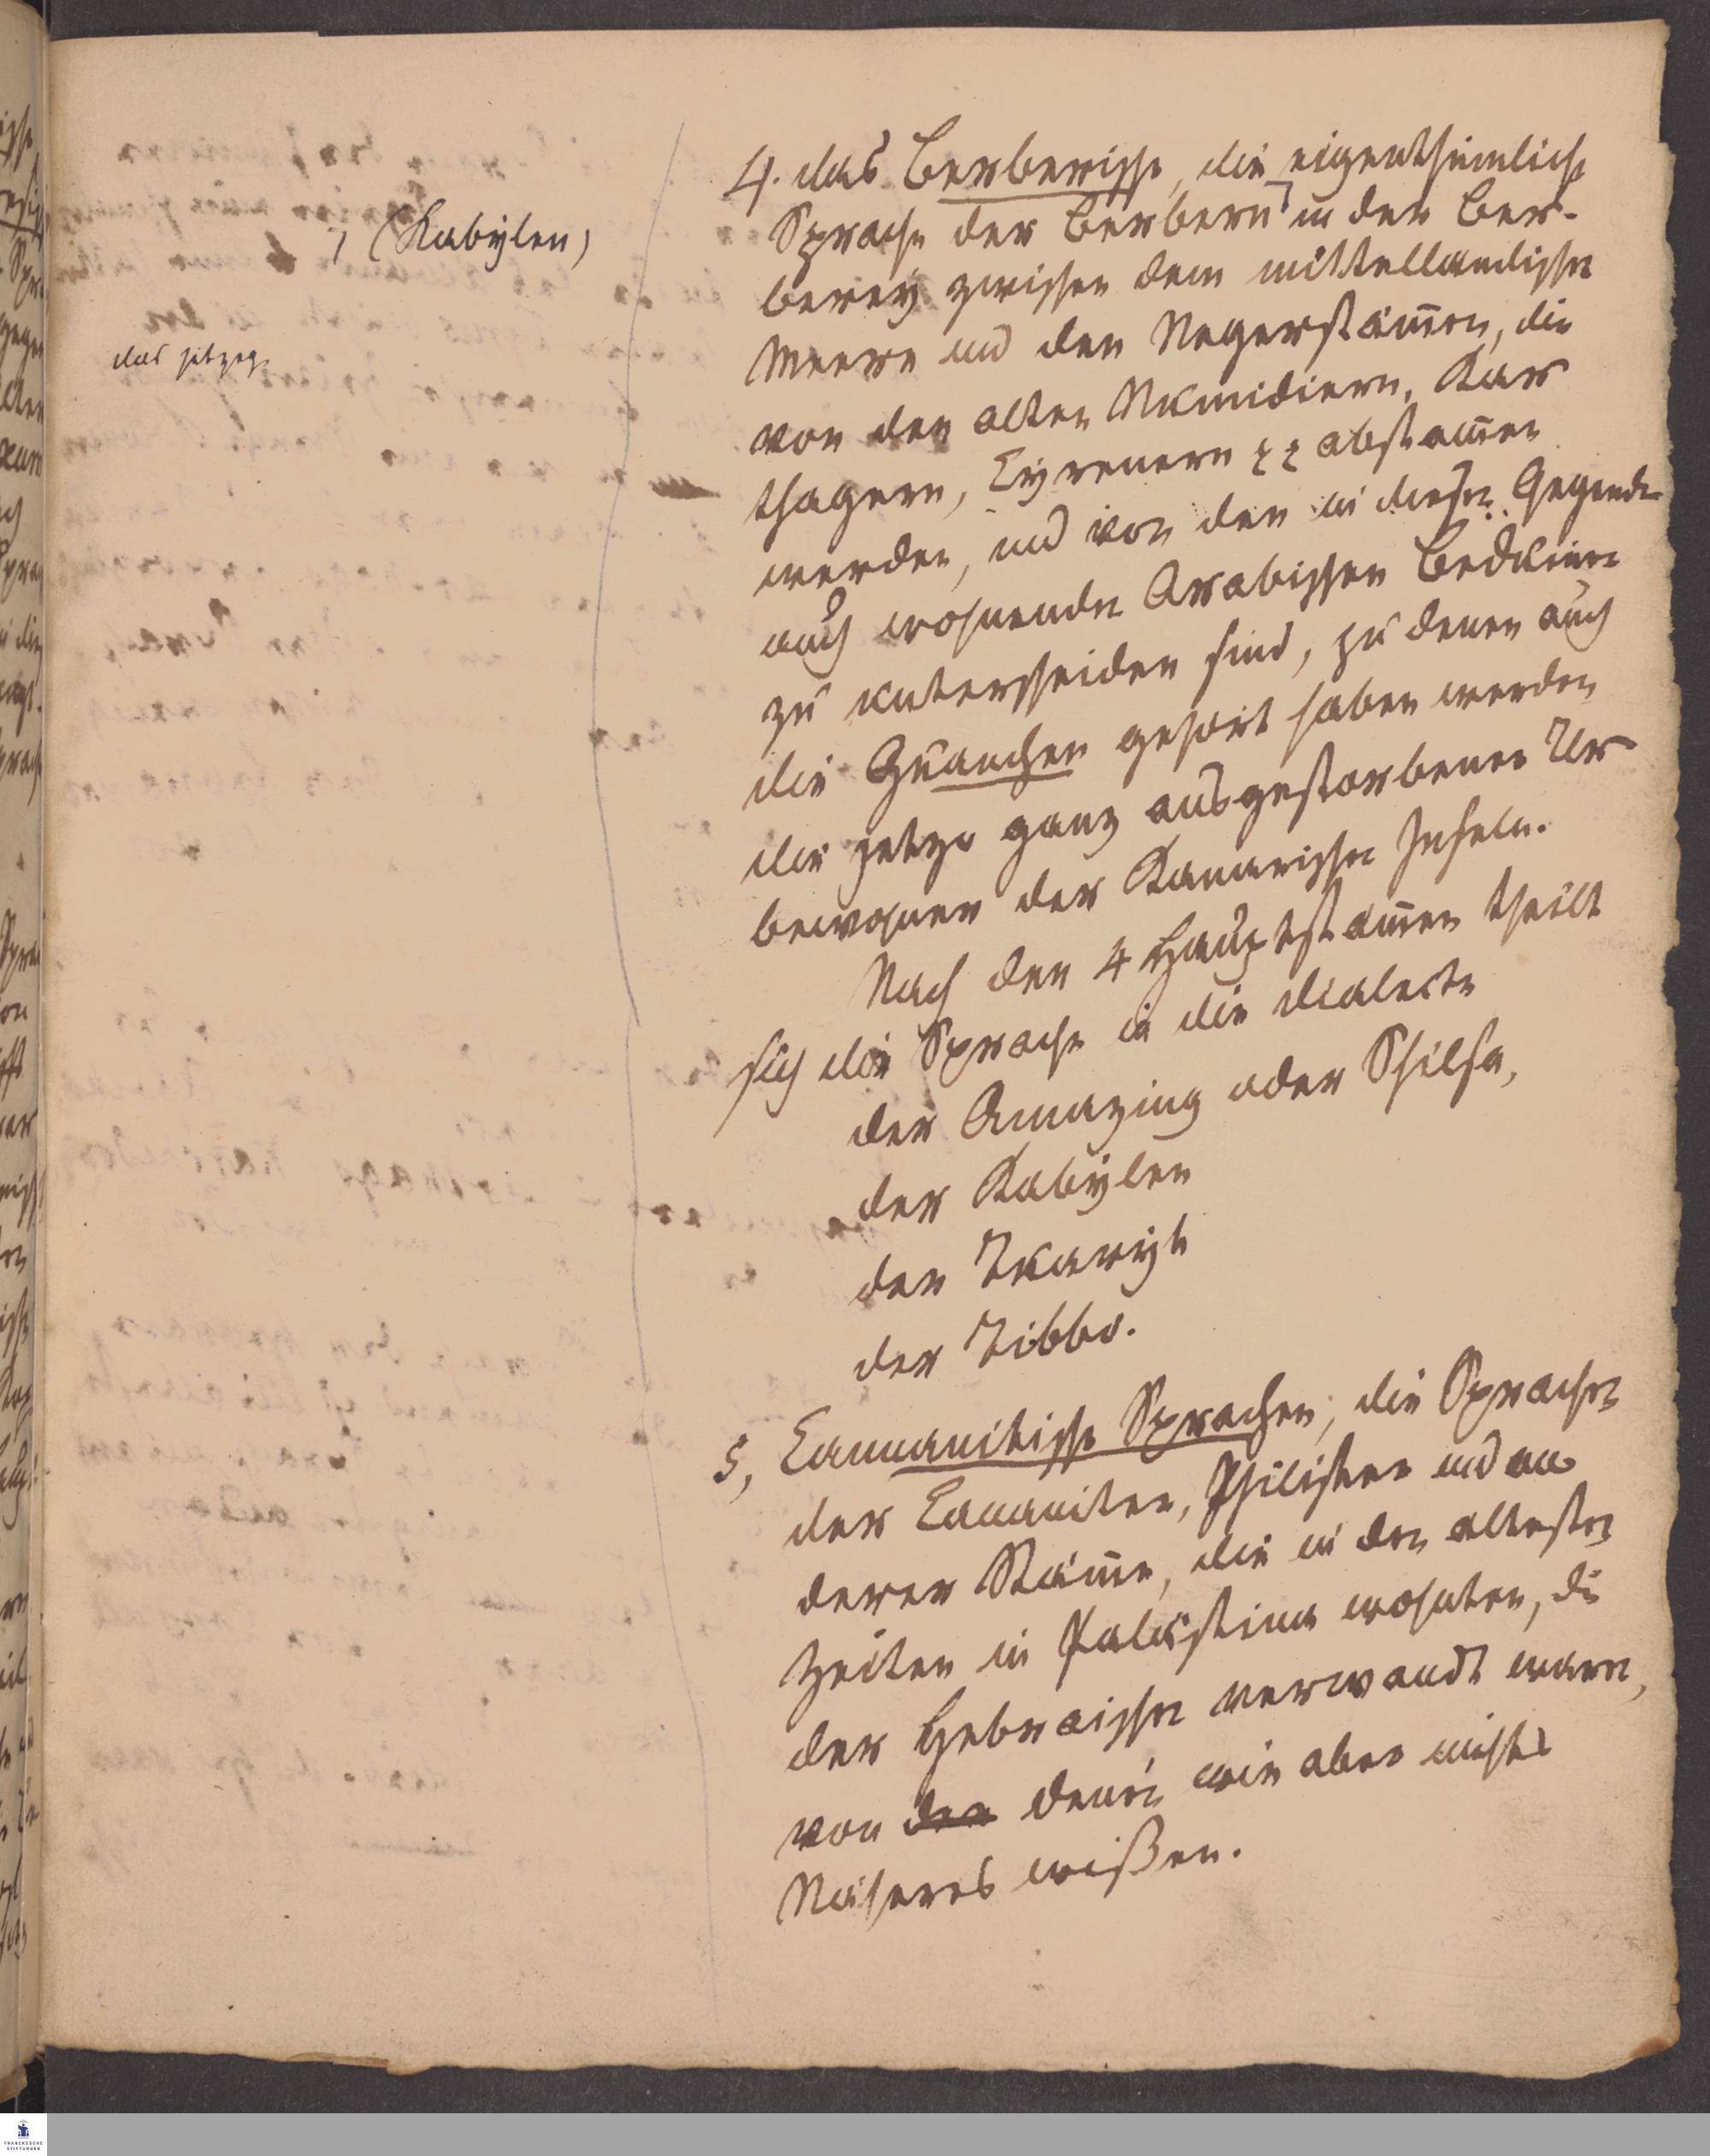 4. das Berberische, die eigenthümliche
Sprache der Berbern ⌉ in der Ber-
⌈ (Kabÿlen)
berey zwischen dem mittellandischen
Meere und den Negerstäm̄en, die
das jetzige
von den alten Numidiern, Kar
thagern, Cÿrenern ꝛꝛ abstam̄en
werden, und von den in diesen Gegenden
auch wohnenden Arabischen Beduinen
zu unterscheiden sind, zu denen auch
die Guanchen gehört haben werden
die jetzo ganz ausgestorbenen Ur
bewohner der Kanarischen Inseln.
Nach den 4 Hauptstäm̄en theilt
sich die Sprache in die Dialecte
der Amazing oder Schilha,
der Kabÿlen
der Tuaryk
der Tibbo.
5, Cannanitische Sprachen, die Sprachen
der Cananiter, Philister und an
derer Stäm̄e, die in den altesten
Zeiten in Palästina wohnten, die
der Hebraischen verwandt waren,
von der denen wir aber nichts
Näheres wißen.
FRANCKESCHE
STIFTUNGEN